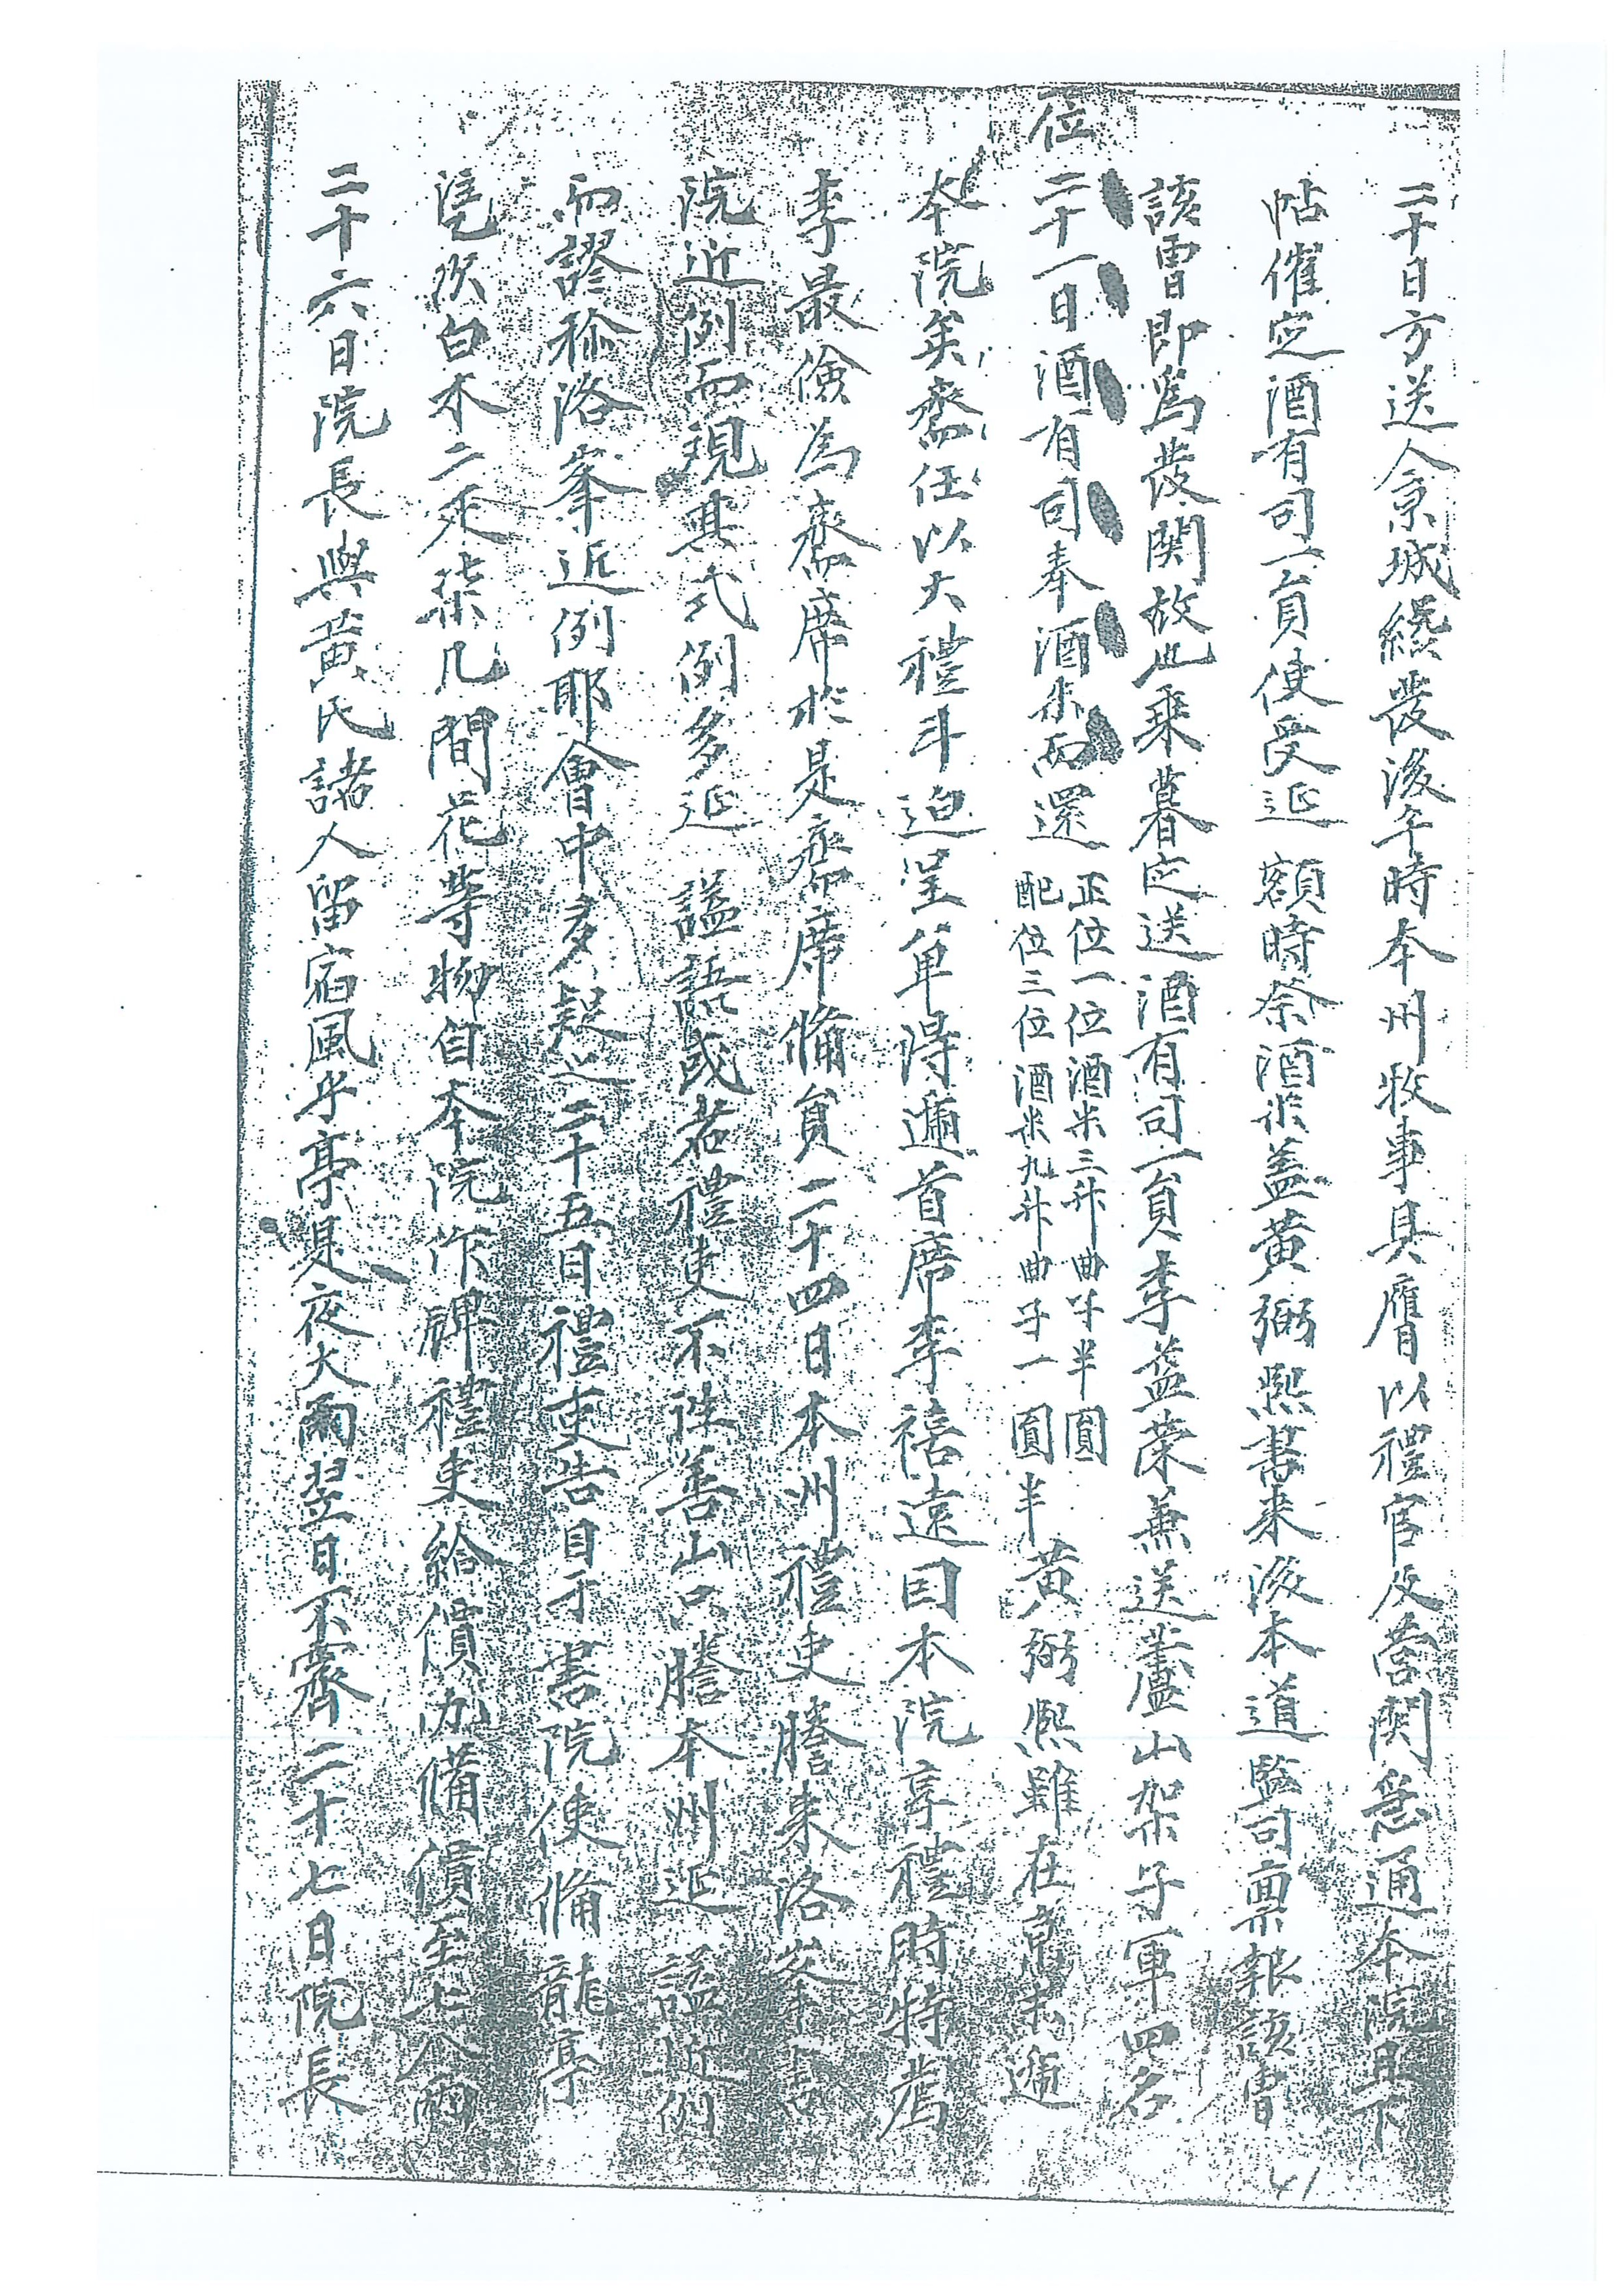 二十日方送人京城纔發後午時本州牧事具膺以禮官及營関急通本院且下
帖催定酒有司一員使受延額時祭酒米盖黄弼熙書来後本道監司稟報該曹
該曹即爲發関故也乗暮定送酒有司一員李益榮兼送蘆山架子軍四名
位
二十一日酒有司奉酒米而還
正位一位酒米三升曲子半圓
配位三位酒米九升曲子一圓半
黄弼熙雖在京未遞
本院矣齋任以大禮斗迫呈單得遞首席李禧遠曰本院享禮時特薦
李最儉爲齋席於是齋席備員二十四日本州禮吏謄来洛峯書
院近例而現其式例多延謚語或者禮吏不往善山只謄本州延謚近例
而謬称洛峯近例耶會中多疑之二十五日禮吏告目于書院使備龍亭
次白木二疋柒几間花等物自本院作牌禮吏給償加備價至七八兩
二十六日院長與黄氏諸人留宿風乎亭是夜大雨翌日不霽二十七日院長
41